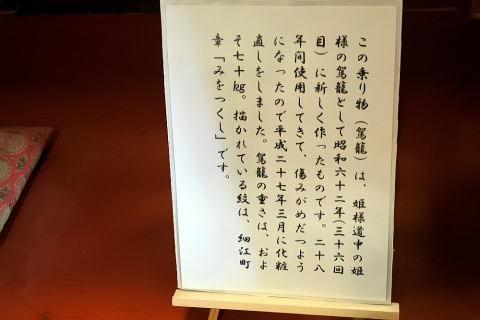 この乗り物（駕籠）は、姫様道中の姫
様の駕籠として昭和六十二年（三十六回
目）に新しく作ったものです。二十八
年間使用してきて、傷みがめだつよう
になったので平成二十七年三月に化粧
直しをしました。駕籠の重さは、およ
そ七十㎏。描かれている紋は、細江町
章「みをつくし」です。